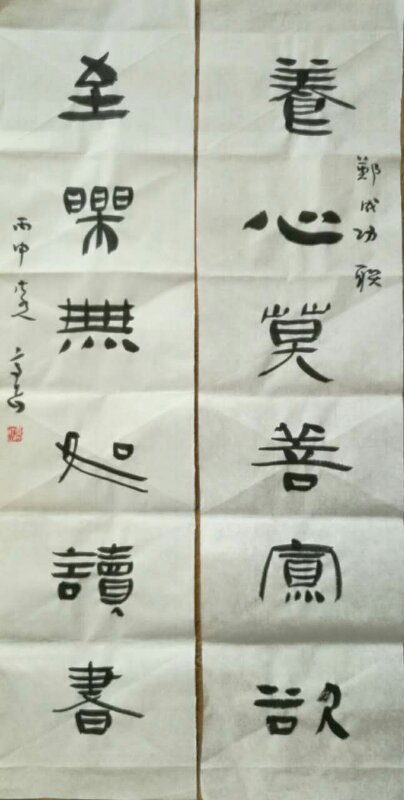 養心莫善寡欲
鄭成功联
至樂無如讀書
丙申